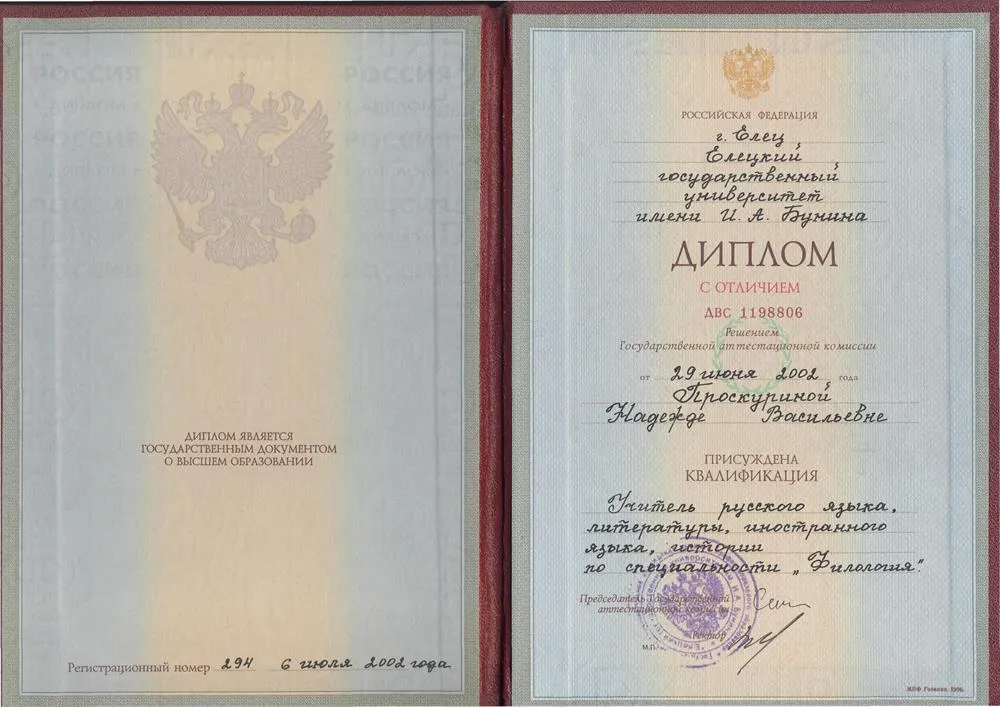 ДИПЛОМ ЯВЛЯЕТСЯ
ГОСУДАРСТВЕННЫМ ДОКУМЕНТОМ
О ВЫСШЕМ ОБРАЗОВАНИИ
Регистрационный номер 294 6 июля 2002 года
РОССИЙСКАЯ ФЕДЕРАЦИЯ
г. Елец
Елецкий
государственный
университет
имени И. А. Бунина
ДИПЛОМ
С ОТЛИЧИЕМ
ДВС 1198806
Решением
Государственной аттестационной комиссии
от 29 июня 2002 года
Проскуриной
Надежде Васильевне
ПРИСУЖДЕНА
КВАЛИФИКАЦИЯ
Учитель русского языка,
литературы, иностранного
языка, истории
по специальности „Филология".
Председатель Государственной
аттестационной комиссии
Ректор
М.П.
МПФ Гознака. 1996.